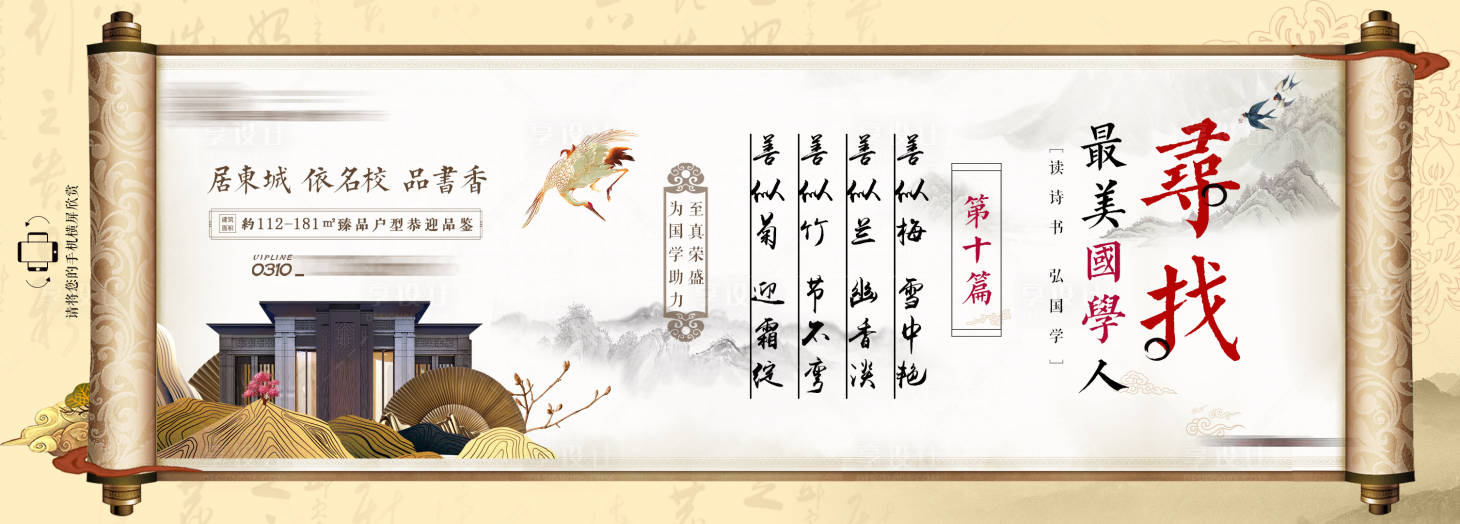 尋找
最美國學人
[读诗书 弘国学]
第十篇
善似梅 雪中艳
善似兰 幽香淡
善似竹 节不弯
善似菊 迎霜绽
至真荣盛
为国学助力
居東城 依名校 品書香
建筑面积 約112-181㎡臻品户型恭迎品鉴
VIPLINE
0310_
请将您的手机横屏欣赏
享设计